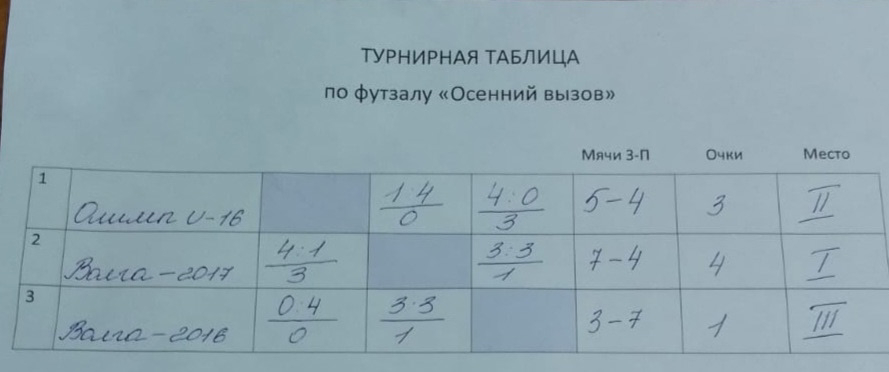 ТУРНИРНАЯ ТАБЛИЦА
по футзалу «Осенний вызов»
Мячи З-П Очки Место
1 Олимп U-16 1:4 0 4:0 3 5-4 3 II
2 Волга-2017 4:1 3 3:3 1 7-4 4 I
3 Волга-2016 0:4 0 3:3 1 3-7 1 III